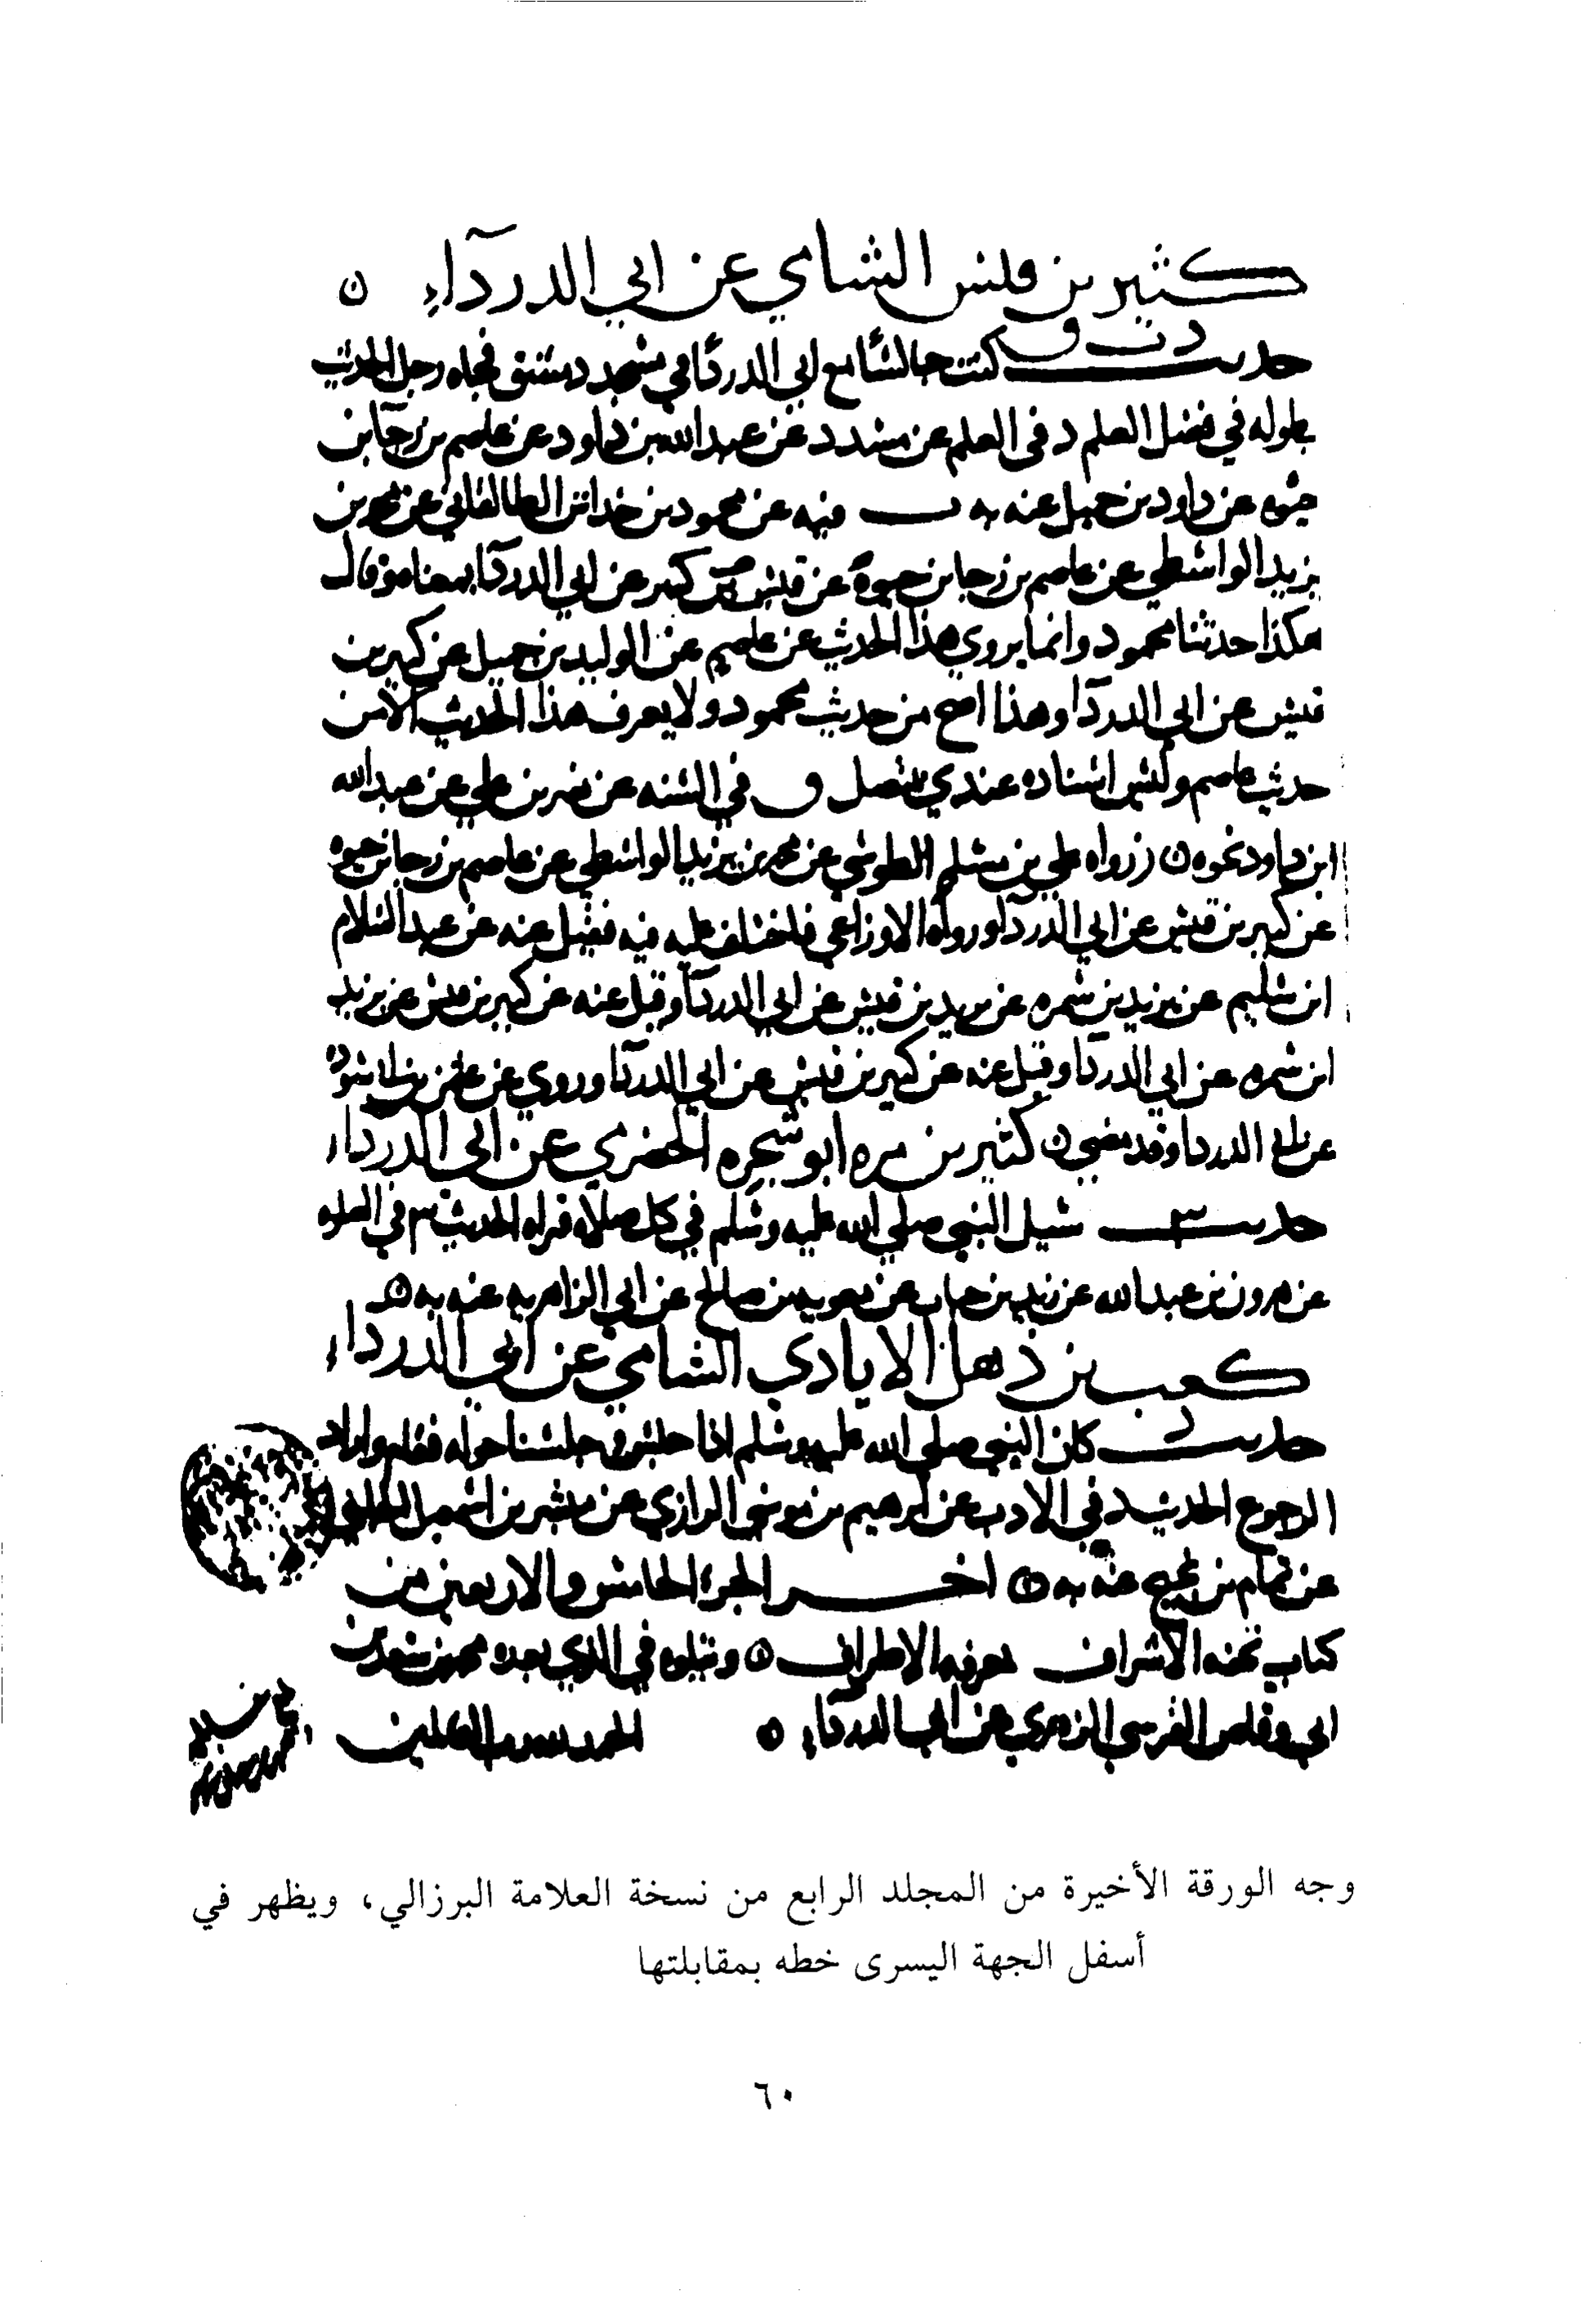 كثير بن قيس الشامي عن ابي الدردآء ن
د ت ق
حديث كنت جالسًا مع ابي الدردآ في مسجد دمشق فجاه رجل الحديث
بطوله في فضل العلم د في العلم عن مسدد عن عبد الله بن داود عن عاصم بن رجآ بن
حيوه عن داود بن جميل عنه به ت فيه عن محمود بن خداش الطالقاني عن محمد بن
يزيد الواسطي عن عاصم بن رجا بن حيوة عن قيس بن كثير عن ابي الدردآ بمعناه وقال
هكذا حدثنا محمود وانما يروي هذا الحديث عن عاصم عن الوليد بن جميل عن كثير بن
قيس عن ابي الدردآ وهذا اصح من حديث محمود ولا يعرف هذا الحديث الا من
حديث عاصم وليس اسناده عندي بمتصل ق في السنه عن نصر بن علي عن عبد الله
ابن داود نحوه ن ز رواه علي بن مسلم الطوسي عن محمد بن يزيد الواسطي عن عاصم بن رجا بن حيوه
عن كثير بن قيس عن ابي الدردآ ورواه الاوزاعي فاختلف عليه فيه فقيل عنه عن عبد السلام
ابن سليم عن يزيد بن سمره عن كثير بن قيس عن ابي الدردآ وقيل عنه عن كثير بن قيس عن يزيد
ابن سمره عن ابي الدردآ وقيل عنه عن كثير بن قيس عن ابي الدردآ وروي عن عثمن بن ابي سوده
عن ابي الدردا وقد مضي ن كثير بن مره ابو شجره الحضرمي عن ابي الدرداء
حديث س سيل النبي صلي الله عليه وسلم في كل صلاة قراه الحديث س في الصلوه
عن هرون بن عبد الله عن زيد بن حباب عن معويه بن صالح عن ابي الزاهريه عنه به
كعب بن ذهل الايادي الشامي عن ابي الدرداء
حديث د كان النبي صلي الله عليه وسلم اذا جلس وجلسنا حوله فقام واراد
الرجوع الحديث د في الادب عن ابرهيم بن موسي الرازي عن مبشر بن اسمعيل الحلبي
عن تمام بن نجيح عنه به اخر الجزء الخامس والاربعين من
كتاب تحفه الاشراف بمعرفه الاطراف ويتلوه في الذي بعده محمد بن سعد بن
ابي وقاص القرشي الزهري عن ابي الدردآء ن الحمد لله رب العالمين
وجه الورقة الأخيرة من المجلد الرابع من نسخة العلامة البرزالي، ويظهر في
أسفل الجهة اليسرى خطه بمقابلتها
٦٠